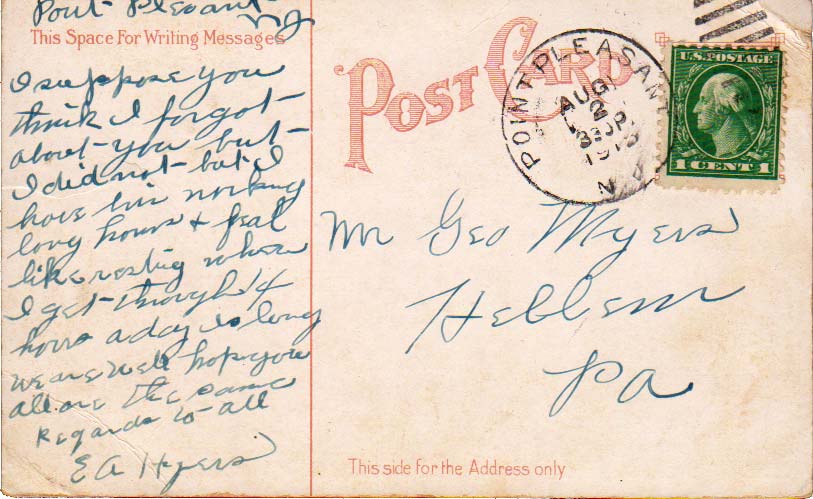 Pont Plesant
NJ
This Space For Writing Messages
I suppose you
think I forgot
about you but
I did not but I
have bin working
long hours & feal
like resting when
I get through 14
hours a day is long
we are well hope you
all are the same
Regards to all
E A Hyers
POST CARD
POINT PLEASANT
AUG
N.J.
U.S. POSTAGE
1 CENT 1
Mr Geo Myers
Hellem
Pa
This side for the Address only